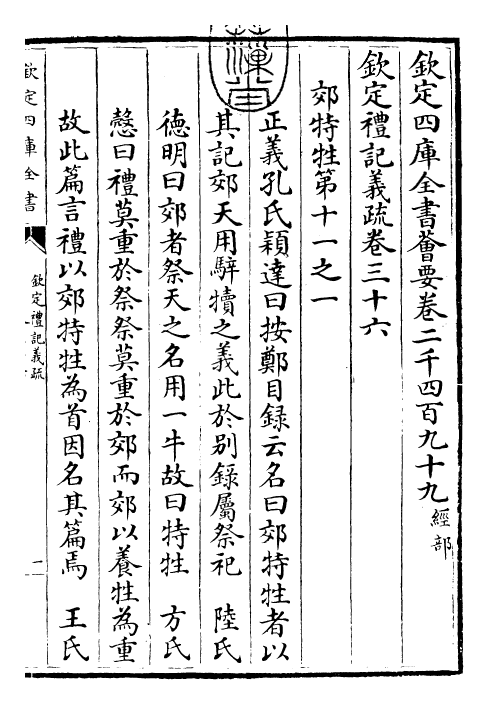 欽定四庫全書薈要卷二千四百九十九 經部
欽定禮記義疏卷三十六
郊特牲第十一之一
正義孔氏穎達曰按鄭目録云名曰郊特牲者以
其記郊天用騂犢之義此於别錄屬祭祀　陸氏
徳明曰郊者祭天之名用一牛故曰特牲　方氏
慤曰禮莫重於祭祭莫重於郊而郊以養牲為重
故此篇言禮以郊特牲為首因名其篇焉　王氏
欽定四庫全書
欽定禮記義疏